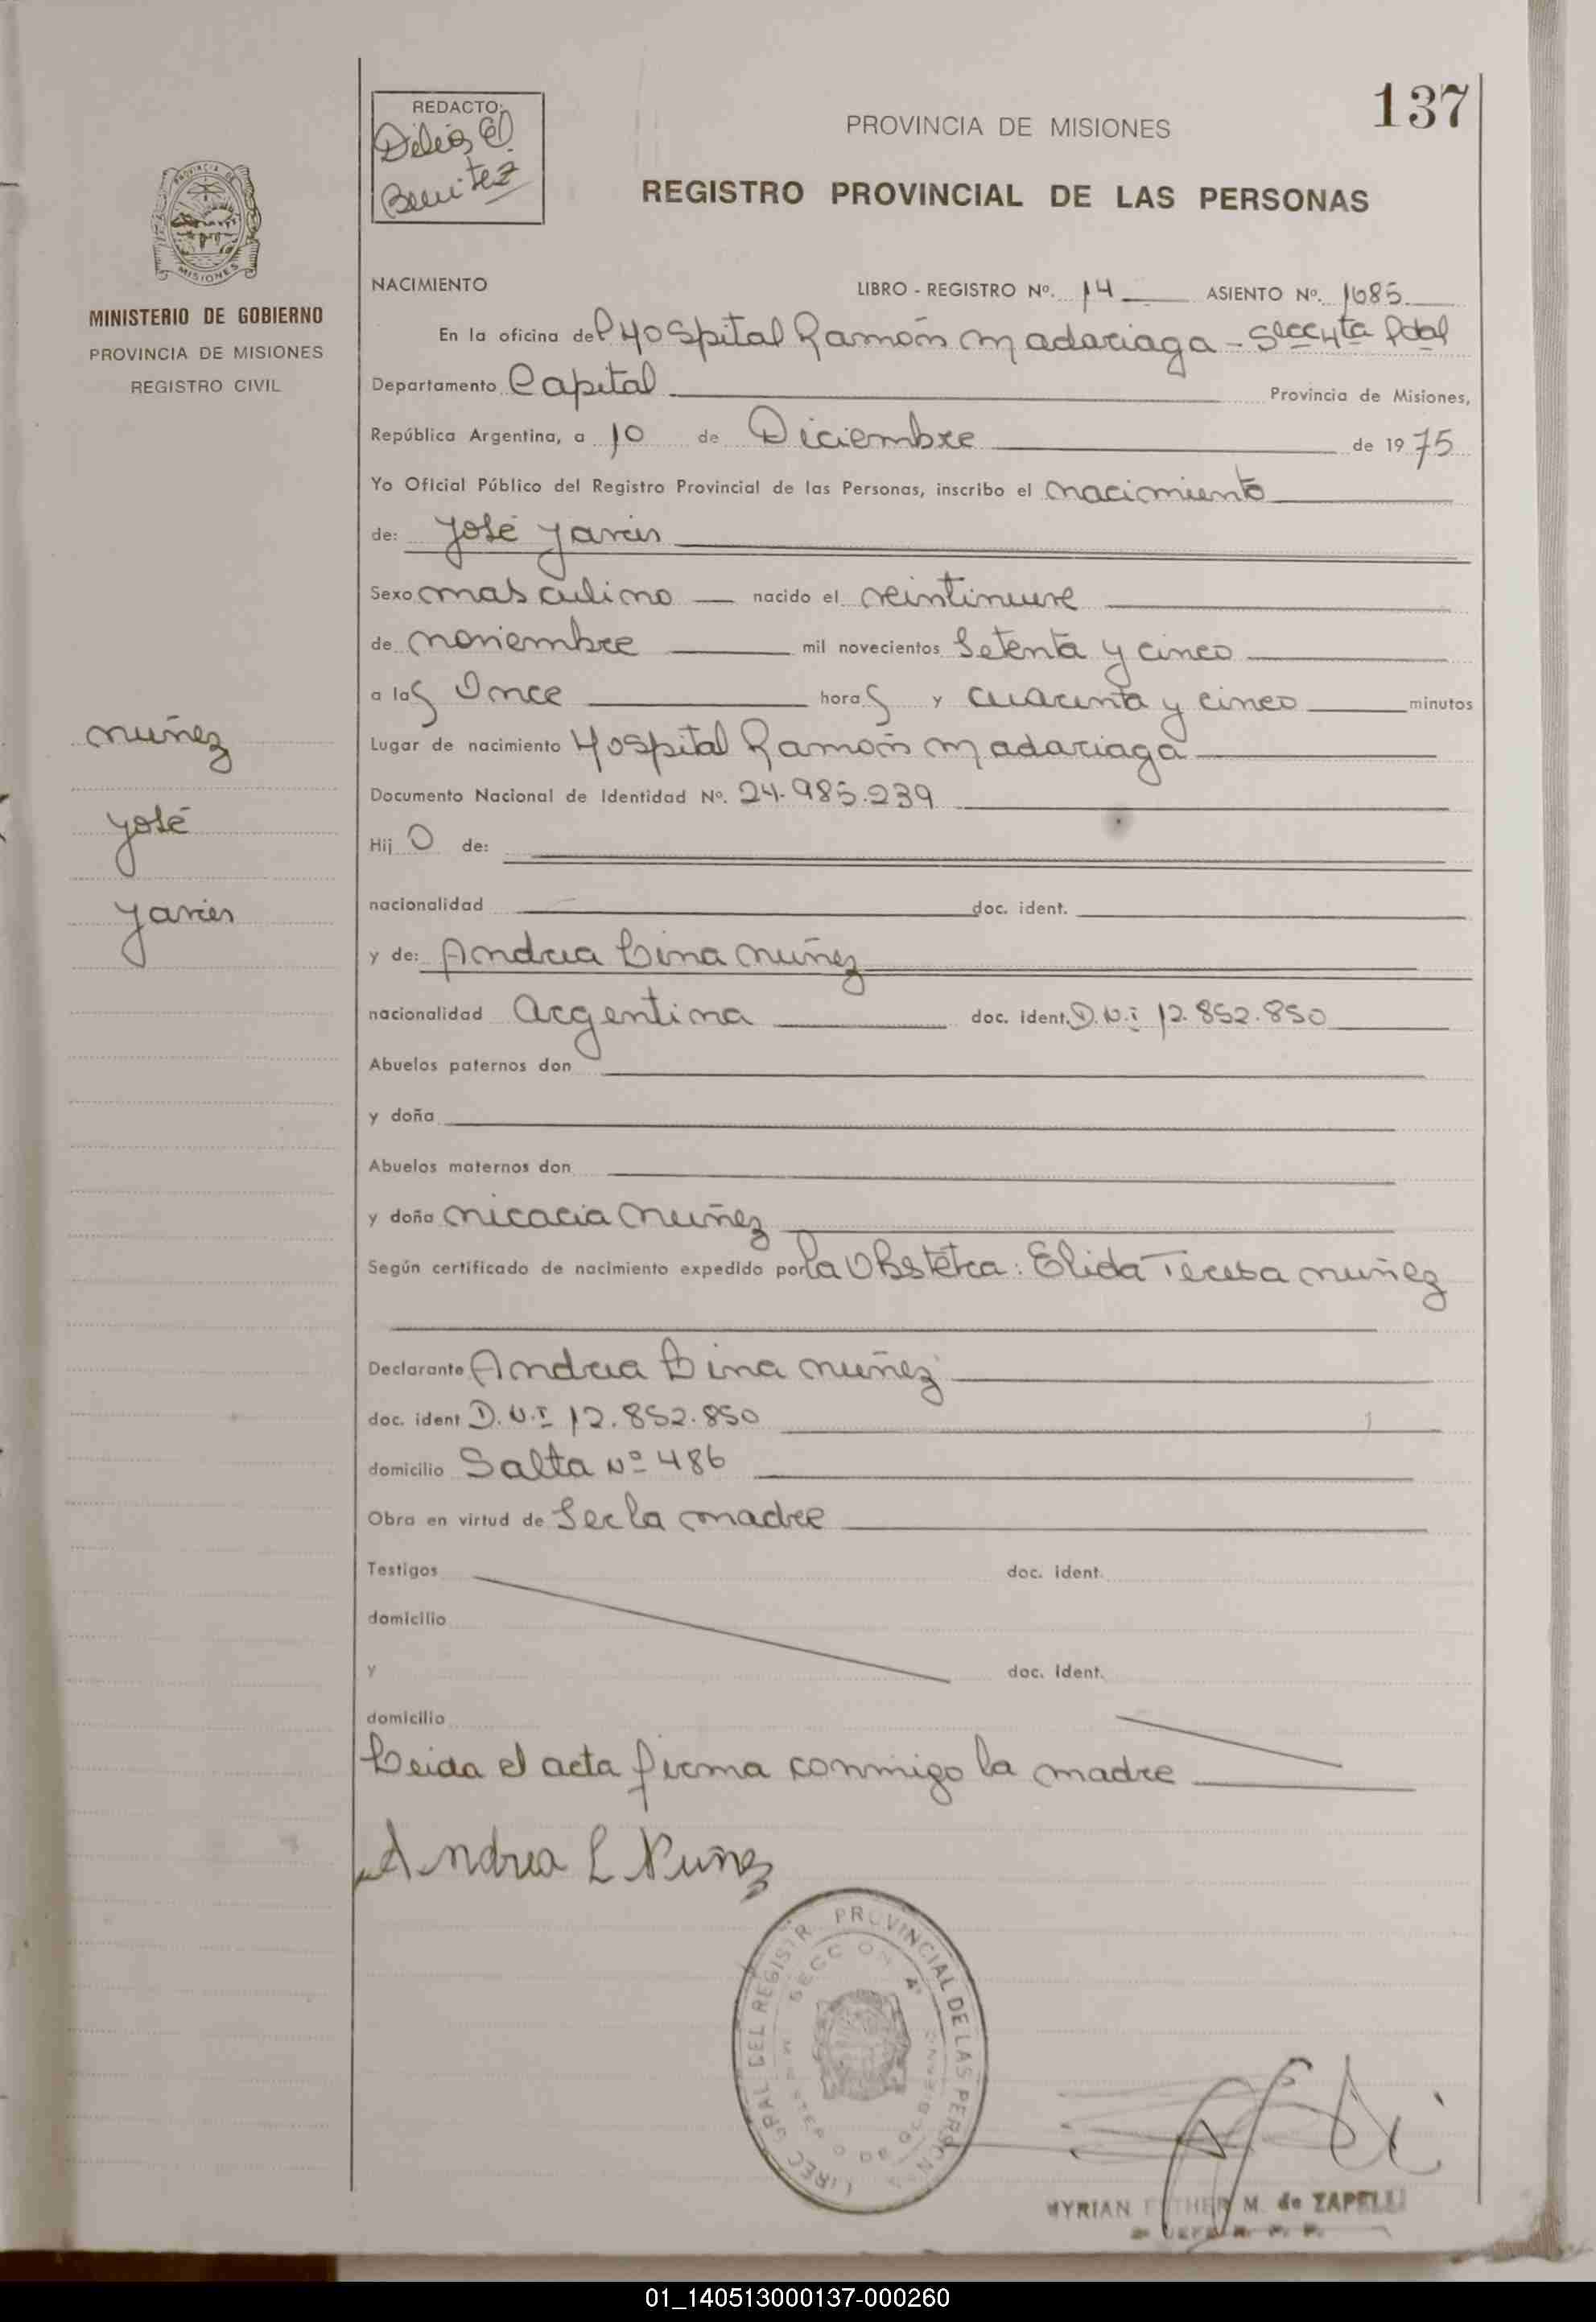 137
REDACTO:
Delia E.
Benitez
PROVINCIA DE MISIONES
REGISTRO PROVINCIAL DE LAS PERSONAS
PROVINCIA DE
MISIONES
MINISTERIO DE GOBIERNO
PROVINCIA DE MISIONES
REGISTRO CIVIL
NACIMIENTO LIBRO - REGISTRO Nº. 14 ASIENTO Nº. 1685
En la oficina del Hospital Ramón Madariaga - Secc 4ta Pdal
Departamento Capital Provincia de Misiones,
República Argentina, a 10 de Diciembre de 1975
Yo Oficial Público del Registro Provincial de las Personas, inscribo el nacimiento
de: José Javier
Sexo masculino nacido el veintinueve
de noviembre mil novecientos Setenta y cinco
a las Once horas y cuarenta y cinco minutos
Nuñez
Lugar de nacimiento Hospital Ramón Madariaga
Documento Nacional de Identidad Nº. 24.985.239
José
Hijo de:
nacionalidad doc. ident.
Javier
y de: Andrea Lina Nuñez
nacionalidad Argentina doc. ident. D.N.I 12.852.850
Abuelos paternos don
y doña
Abuelos maternos don
y doña Nicacia Nuñez
Según certificado de nacimiento expedido por la Obstetra: Elida Teresa Nuñez
Declarante Andrea Lina Nuñez
doc. ident D.N.I 12.852.850
domicilio Salta Nº 486
Obra en virtud de Ser la madre
Testigos doc. ident.
domicilio
y doc. ident.
domicilio
Leida el acta firma conmigo la madre
Andrea L Nuñez
PROVINCIAL DE LAS PERSONAS
GRAL DEL REGISTR
SECCION 4ª
MYRIAN ESTHER M. de ZAPELLI
01_140513000137-000260